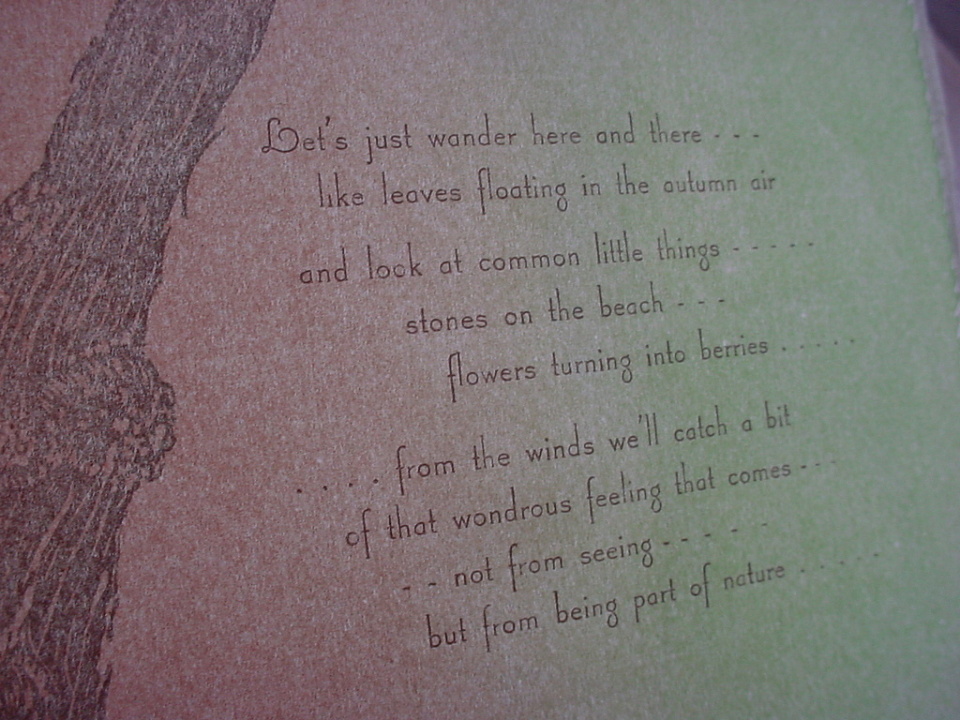 Let's just wander here and there - - -
like leaves floating in the autumn air
and look at common little things - - - - -
stones on the beach - - -
flowers turning into berries . . . . .
. . . . from the winds we'll catch a bit
of that wondrous feeling that comes - - -
- - not from seeing - - - - -
but from being part of nature . . . . .